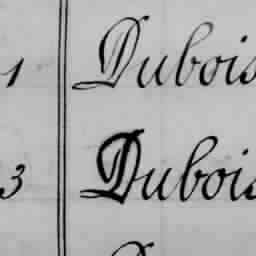 1 Dubois
3 Dubois